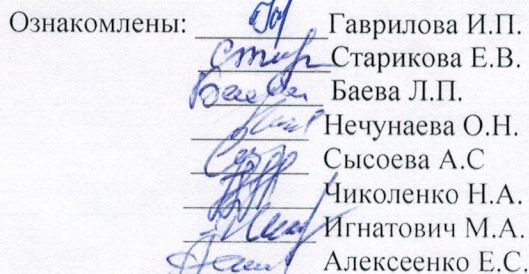 Ознакомлены: Гаврилова И.П.
Старикова Е.В.
Баева Л.П.
Нечунаева О.Н.
Сысоева А.С
Чиколенко Н.А.
Игнатович М.А.
Алексеенко Е.С.